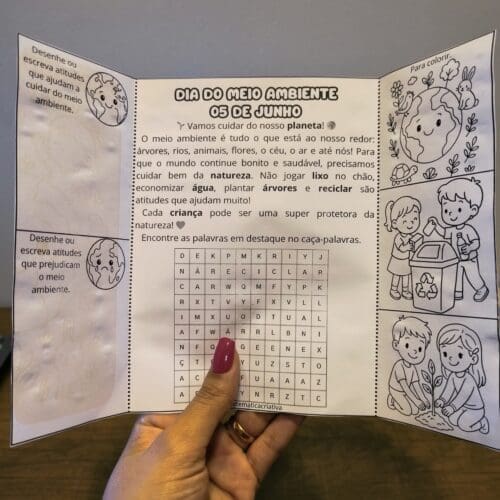 Desenhe ou
escreva atitudes
que ajudam a
cuidar do meio
ambiente.
Desenhe ou
escreva atitudes
que prejudicam o
meio
ambiente.
DIA DO MEIO AMBIENTE
05 DE JUNHO
Vamos cuidar do nosso planeta!
O meio ambiente é tudo o que está ao nosso redor:
árvores, rios, animais, flores, o céu, o ar e até nós! Para
que o mundo continue bonito e saudável, precisamos
cuidar bem da natureza. Não jogar lixo no chão,
economizar água, plantar árvores e reciclar são
atitudes que ajudam muito!
Cada criança pode ser uma super protetora da
natureza!
Encontre as palavras em destaque no caça-palavras.
D E K P M K R I Y J
N Á R E C I C L A R
C A R W Q M F Y P K
R X T V Y F X V L L
I M X U O D T U A L
A F W A R R L B N I
N F G E E N E X
Ç T I Z S T O
A C F U A A A Z
A Y N R Z T C
Para colorir.